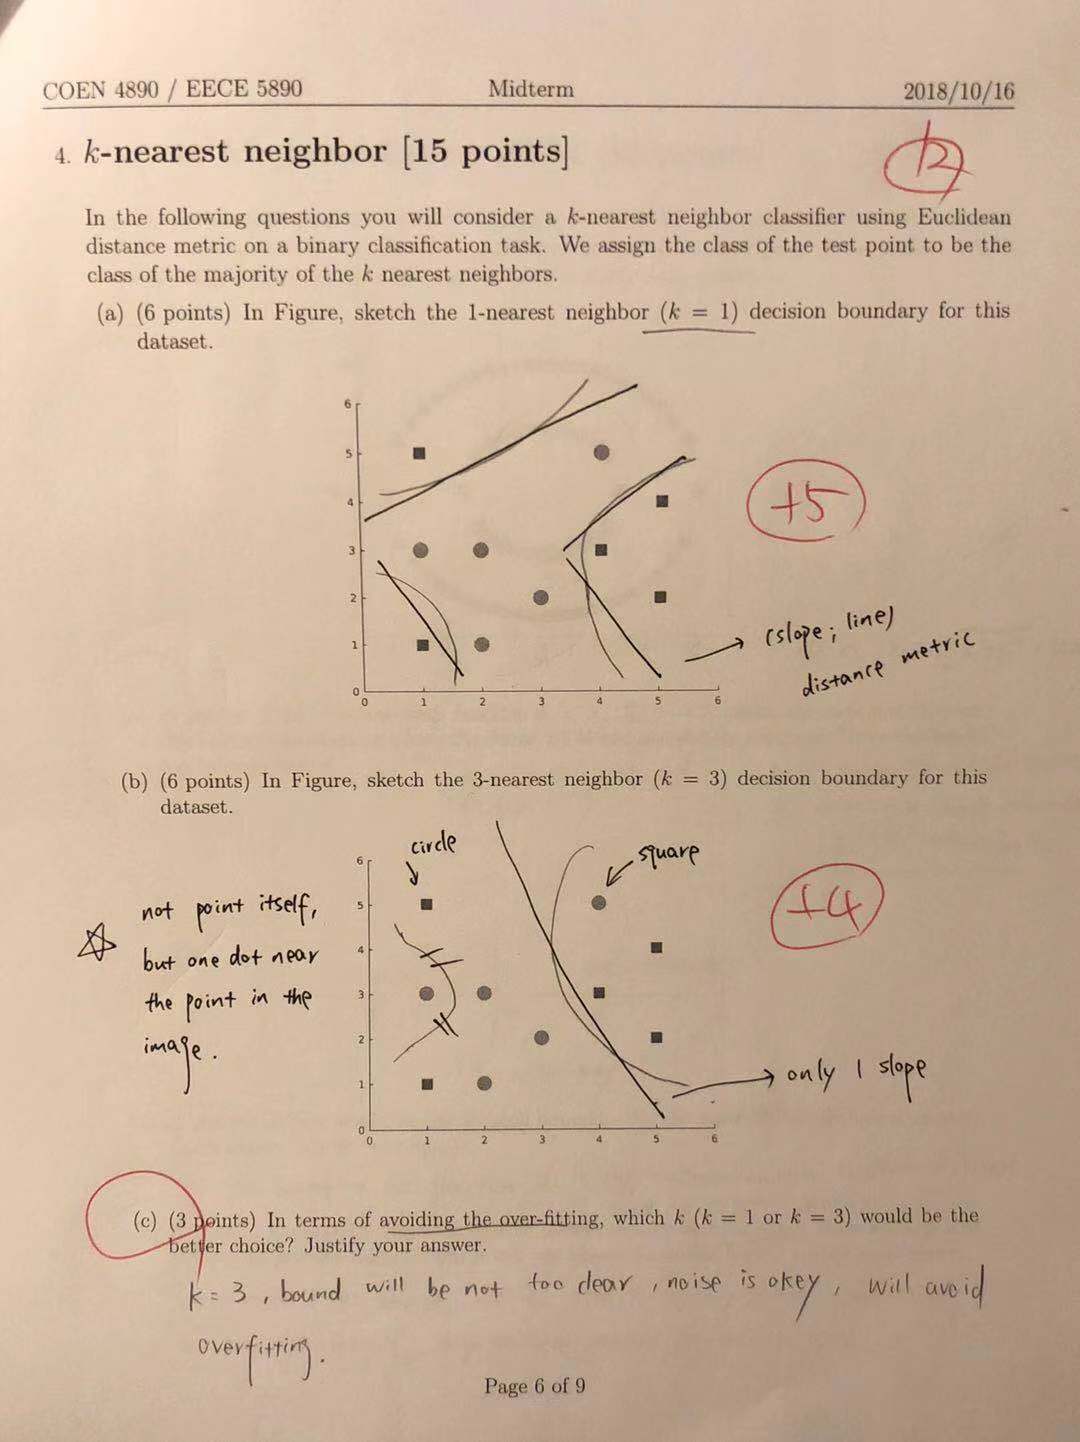 COEN 4890 / EECE 5890 Midterm 2018/10/16
4. k-nearest neighbor [15 points]
12
In the following questions you will consider a k-nearest neighbor classifier using Euclidean
distance metric on a binary classification task. We assign the class of the test point to be the
class of the majority of the k nearest neighbors.
(a) (6 points) In Figure, sketch the 1-nearest neighbor (k = 1) decision boundary for this
dataset.
6
5
4
3
2
1
0
0 1 2 3 4 5 6
+5
(slope; line)
distance metric
(b) (6 points) In Figure, sketch the 3-nearest neighbor (k = 3) decision boundary for this
dataset.
circle
square
+4
not point itself,
but one dot near
the point in the
image.
6
5
4
3
2
1
0
0 1 2 3 4 5 6
only 1 slope
(c) (3 points) In terms of avoiding the over-fitting, which k (k = 1 or k = 3) would be the
better choice? Justify your answer.
k = 3, bound will be not too clear, noise is okey, will avoid
overfitting.
Page 6 of 9